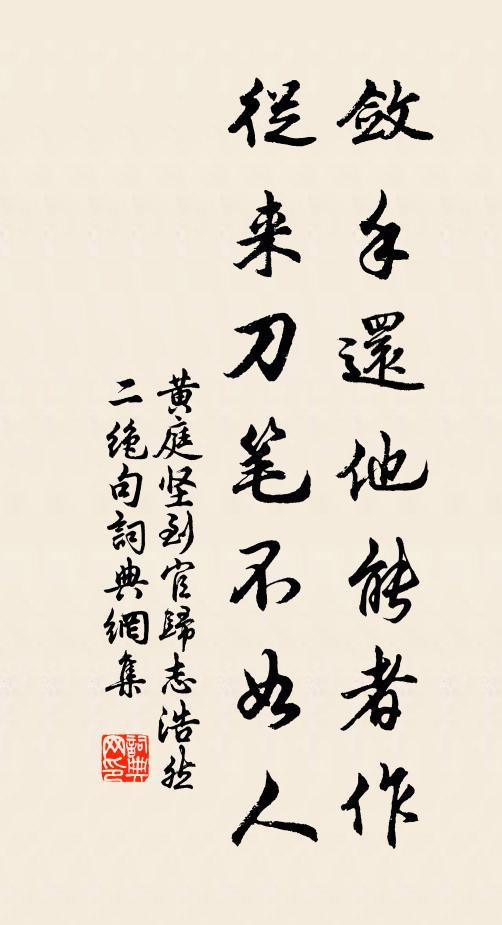 斂手還他能者作
從来刀笔不如人
黄庭坚到官歸志浩然
二绝句詞典網集
詞典网印